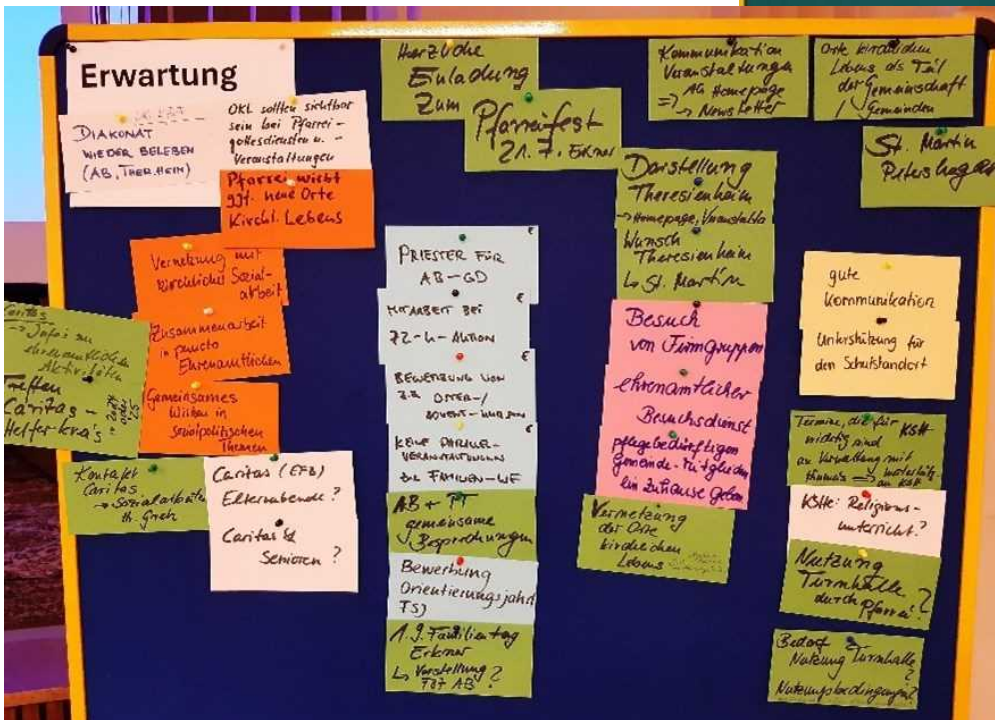 Erwartung
DIAKONAT
WIEDER BELEBEN
(AB, THER.HEIM)
OKL sollten sichtbar
sein bei Pfarrei-
gottesdiensten u. -
Veranstaltungen
Pfarrei wirbt
ggf. neue Orte
Kirchl. Lebens
Vernetzung mit
kirchlicher Sozial-
arbeit
Zusammenarbeit
in puncto
Ehrenamtlichen
Gemeinsames
Wirken in
sozialpolitischen
Themen
Caritas
→ Infos zu
ehrenamtlichen
Aktivitäten
Treffen
Caritas -
Helferkreis
Kontakt
Caritas
→ Sozialarbeiter
Caritas (EFB)
Elternabende?
Caritas &
Senioren?
Herzliche
Einladung
Zum
Pfarreifest
21.7. Erkner
PRIESTER FÜR
AB-GD
MITARBEIT BEI
72-h-AKTION
BEWERBUNG VON
Z.B. OSTER-/
ADVENT-
KEINE PARALLEL-
VERANSTALTUNGEN
FAMILIEN-WE
AB +
gemeinsame
Besprechungen
Bewerbung
Orientierungsjahr
FSJ
1.9. Familientag
Erkner
↳ Vorstellung?
AB
Kommunikation
Veranstaltungen
=> AG Homepage
→ Newsletter
Orte kirchlichen
Lebens als Teil
der Gemeinschaft
/ Gemeinden
St. Martin
Petershagen
Darstellung
Theresienheim
→ Homepage,
Wunsch
Theresienheim
↳ St. Martin
Besuch
von Firmgruppen
ehrenamtlicher
Besuchsdienst
pflegebedürftigen
Gemeinde-Mitgliedern
ein Zuhause geben
Vernetzung
der Orte
kirchlichen
Lebens
gute
Kommunikation
Unterstützung für
den Schulstandort
Termine, die für KSH
wichtig sind
an Verwaltung mit
KSHe: Religions-
unterricht?
Nutzung
Turnhalle
durch Pfarrei?
Bedarf
Nutzung Turnhalle?
Nutzungsbedingungen?